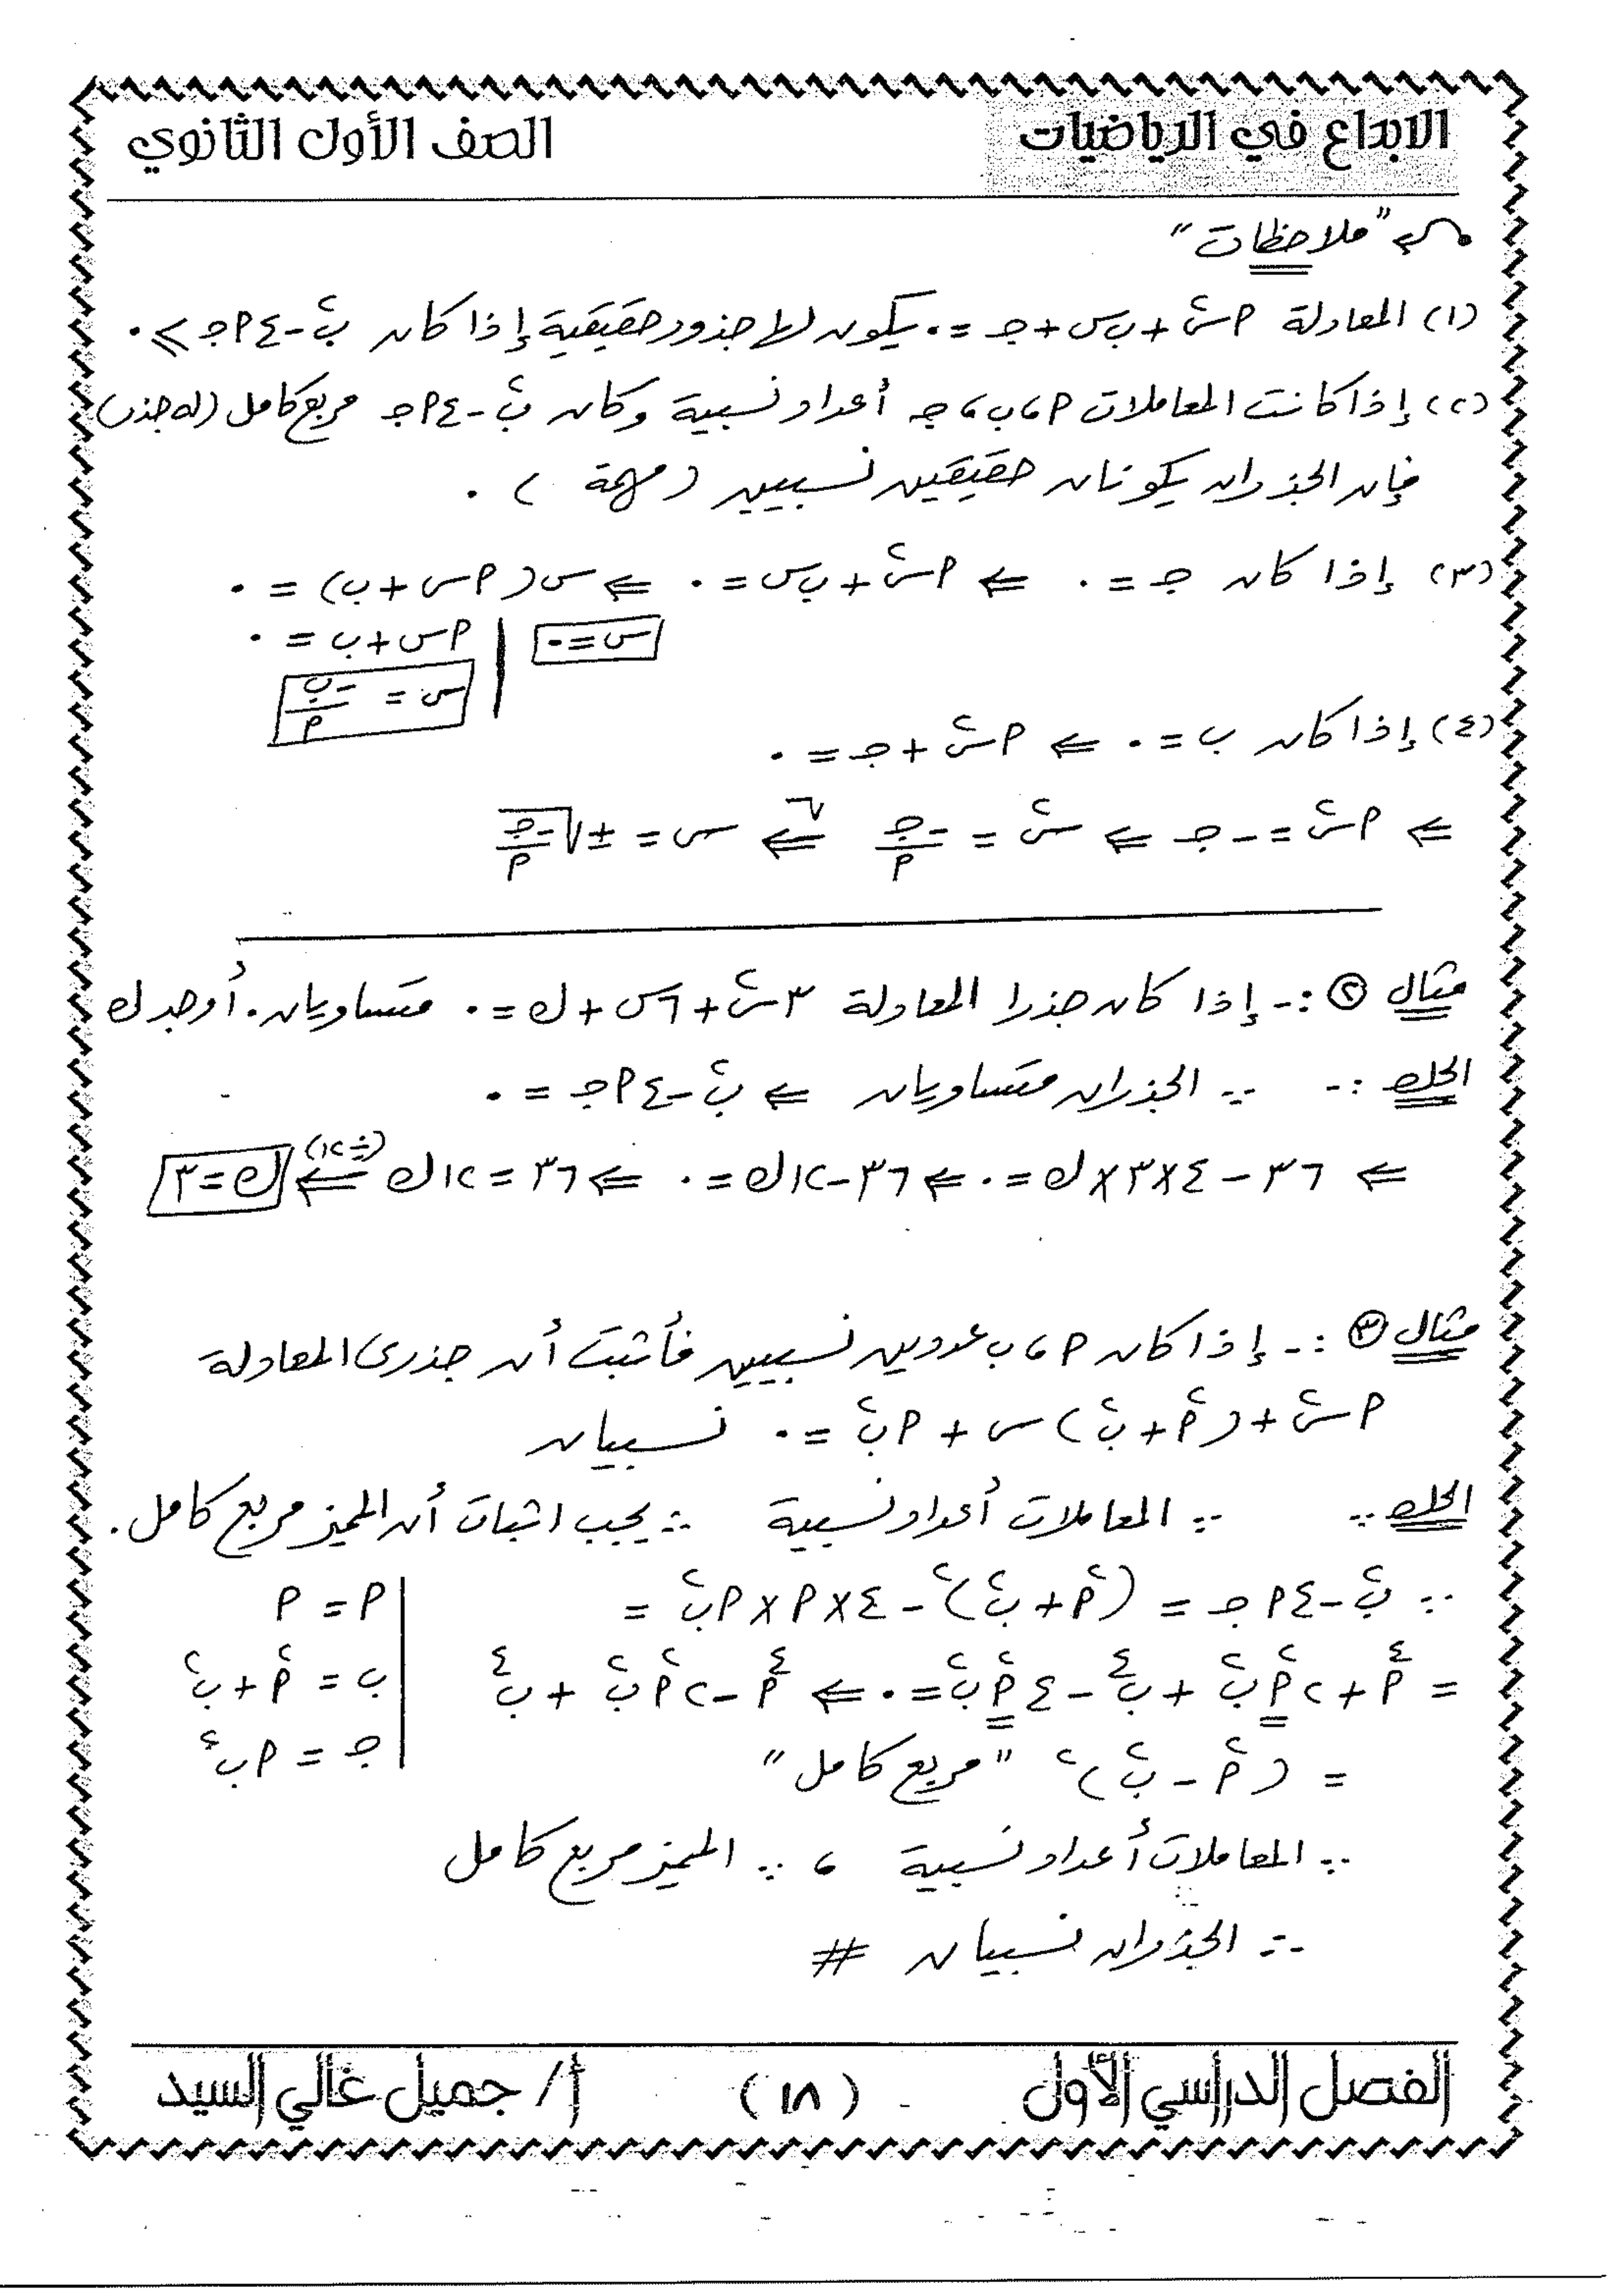 الابداع في الرياضيات
الصف الأول الثانوي
"ملاحظات"
(١) المعادلة أس² + ب س + جـ = ٠ يكون لها جذور حقيقية إذا كان ب² - ٤أجـ ≥ ٠
(٢) إذا كانت المعاملات أ، ب، جـ أعداد نسبية وكان ب² - ٤أجـ مربع كامل (له جذر)
فإن الجذران يكونان حقيقين نسبيين (مهمة) .
(٣) إذا كان جـ = ٠ ⇐ أس² + ب س = ٠ ⇐ س(أس + ب) = ٠
س = ٠ | أس + ب = ٠
س = -ب/أ
(٤) إذا كان ب = ٠ ⇐ أس² + جـ = ٠
⇐ أس² = -جـ ⇐ س² = -جـ/أ ⇐√ س = ±√(-جـ/أ)
مثال ② :- إذا كان جذرا المعادلة ٣س² + ٦س + ك = ٠ متساويان . أوجد ك
الحل :- ∵ الجذران متساويان ⇐ ب² - ٤أجـ = ٠
⇐ ٣٦ - ٤×٣×ك = ٠ ⇐ ٣٦ - ١٢ك = ٠ ⇐ ٣٦ = ١٢ك ⇐(÷١٢) ك = ٣
مثال ③ :- إذا كان أ، ب عددين نسبيين فأثبت أن جذرى المعادلة
أس² + (أ² + ب²)س + أب² = ٠ نسبيان
الحل :- ∵ المعاملات أعداد نسبية ∴ يجب اثبات أن المميز مربع كامل .
∵ ب² - ٤أجـ = (أ² + ب²)² - ٤×أ×أب² = | أ = أ
= أ⁴ + ٢أ²ب² + ب⁴ - ٤أ²ب² = ٠ ⇐ أ⁴ - ٢أ²ب² + ب⁴ | ب = أ² + ب²
= (أ² - ب²)² "مربع كامل" | جـ = أب²
∵ المعاملات أعداد نسبية ، ∵ المميز مربع كامل
∴ الجذران نسبيان #
الفصل الدراسي الأول
(١٨)
أ/ جميل غالي السيد